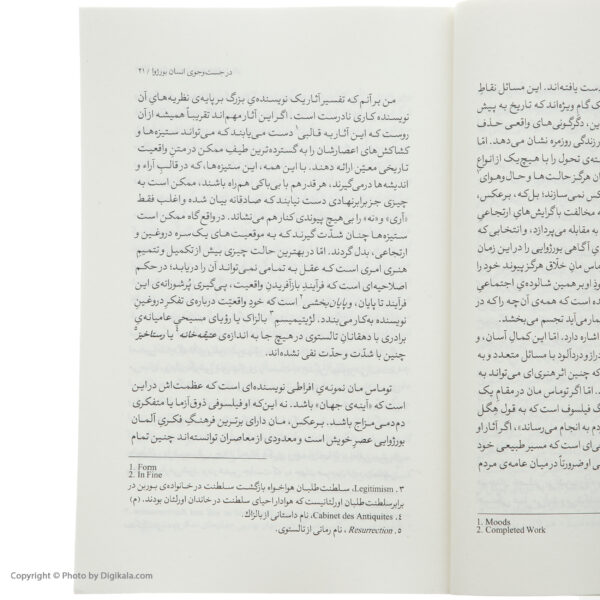 در جست‌وجوی انسان بورژوا / ۲۱
من بر آنم که تفسیر آثار یک نویسنده‌ی بزرگ بر پایه‌ی نظریه‌هایِ آن
نویسنده کاری نادرست است. اگر این آثار مهم‌اند تقریباً همیشه از آن
روست که این آثار به قالبی۱ دست می‌یابند که می‌تواند ستیزه‌ها و
کشاکش های اعصارشان را به گسترده‌ترین طیفِ ممکن در متنِ واقعیت
تاریخی معین ارائه دهند. با این همه، این ستیزه‌ها، که در قالب آراء و
اندیشه‌ها درمی‌گیرند، هر قدر هم با بی‌باکی هم‌راه باشند، ممکن است به
چیزی جز برابرنهادی دست نیابند که صادقانه بیان شده و اغلب فقط
«آری» و «نه» را بی‌هیچ پیوندی کنار هم می‌نشاند. در واقع گاه ممکن است
ستیزه‌ها چنان شدّت گیرند که به موقعیت‌های یک‌سره دروغین و
ارتجاعی، بدل گردند. امّا در بهترین حالت چیزی بیش از تکمیل و تتمیمِ
هنری امری است که عقل به تمامی نمی‌تواند آن را دریابد؛ در حکم
اصلاحیه‌ای است که فرآیندِ بازآفریدنِ واقعیت، پی‌گیریِ پُرشورانه‌ی این
فرآیند تا پایان، و پایان‌بخشی۲ است که خودِ واقعیّت درباره‌ی تفکرِ دروغینِ
نویسنده به کار می‌بندد. لژیتیمیسمِ۳ بالزاک یا رؤیای مسیحیِ عامیانه‌یِ
برادری با دهقانانِ تالستوی در هیچ جا به اندازه‌ی عتیقه‌خانه۴ یا رستاخیز۵
چنین با شدّت و حدّت نفی نشده‌اند.
توماس مان نمونه‌ی افراطی نویسنده‌ای است که عظمت‌اش در این
است که «آینه‌ی جهان» باشد. نه این‌که او فیلسوفی ذوق‌آزما یا متفکری
دم‌دمی‌مزاج باشد. برعکس، مان دارای برترین فرهنگِ فکریِ آلمان
بورژواییِ عصر خویش است و معدودی از معاصران توانسته‌اند چنین تمام
1. Form
2. In Fine
۳. Legitimism، سلطنت‌طلبان هواخواه بازگشت سلطنت در خانواده‌ی بوربن در
برابر سلطنت‌طلبان اورلئانیست که هوادار احیای سلطنت در خاندان اورلئان بودند. (م)
۴. Cabinet des Antiquites، نام داستانی از بالزاک.
۵. Resurrection، نام رمانی از تالستوی.
دست یافته‌اند. این مسائل نقاطِ
ک گامِ ویژه‌اند که تاریخ به پیش
این، دگرگونی‌های واقعی حذف
زندگی روزمره نشان می‌دهد. امّا
ته‌ی تحول را با هیچ یک از انواعِ
ان هرگز حالت‌ها و حال و هوای۱
س نمی‌سازند؛ بل‌که، برعکس،
مخالفت با گرایش‌هایِ ارتجاعی
به مقابله می‌پردازد، و انتخابی که
آگاهی بورژوایی را در این زمان
ماس مان خلّاق هرگز پیوند خود را
او بر همین شالوده‌ی اجتماعیِ
ده است که همه‌ی آن‌چه را که در
مار می‌آید تجسم می‌بخشد.
اشاره دارد. امّا این کمالِ آسان، و
دراز و دردآلود با مسائل متعدد و به
که چنین اثر هنری‌ای می‌تواند به
امّا اگر توماس مان در مقامِ یک
ک فیلسوف است که به قولِ هِگل
دم به انجام می‌رساند»، اگر آثار او
ه‌ای است که مسیر طبیعی خود
او ضرورتاً در میان عامه‌ی مردم
1. Moods
2. Completed Work
Copyright © Photo by Digikala.com